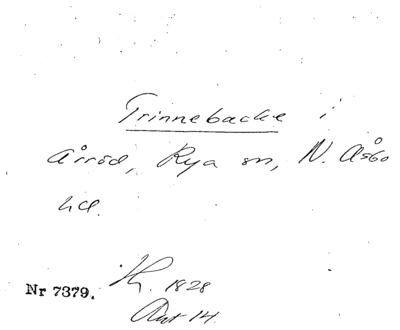 Trinnebacke i
Årröd, Rya sn, N. Åsbo
hd.
Nr 7379.
1828
Akt 14.